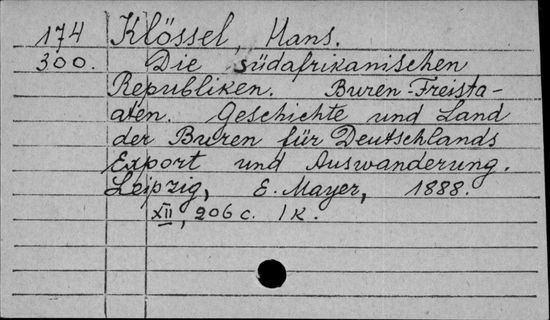 174 Klössel, Hans.
300. Die südafrikanischen
Republiken. Buren-Freista-
aten. Geschichte und Land
der Buren für Deutschlands
Export und Auswanderung.
Leipzig, E. Mayer, 1888.
XII, 206 c. 1 K.